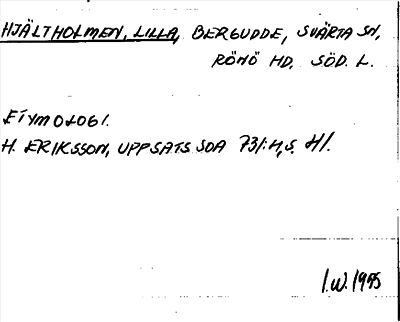 HJÄLTHOLMEN, LILLA, BERGUDDE, SVÄRTA SN,
RÖNÖ HD. SÖD. L.
ETYMOLOGI.
H. ERIKSSON, UPPSATS SOA 731:4, S. 41.
I.W. 1975